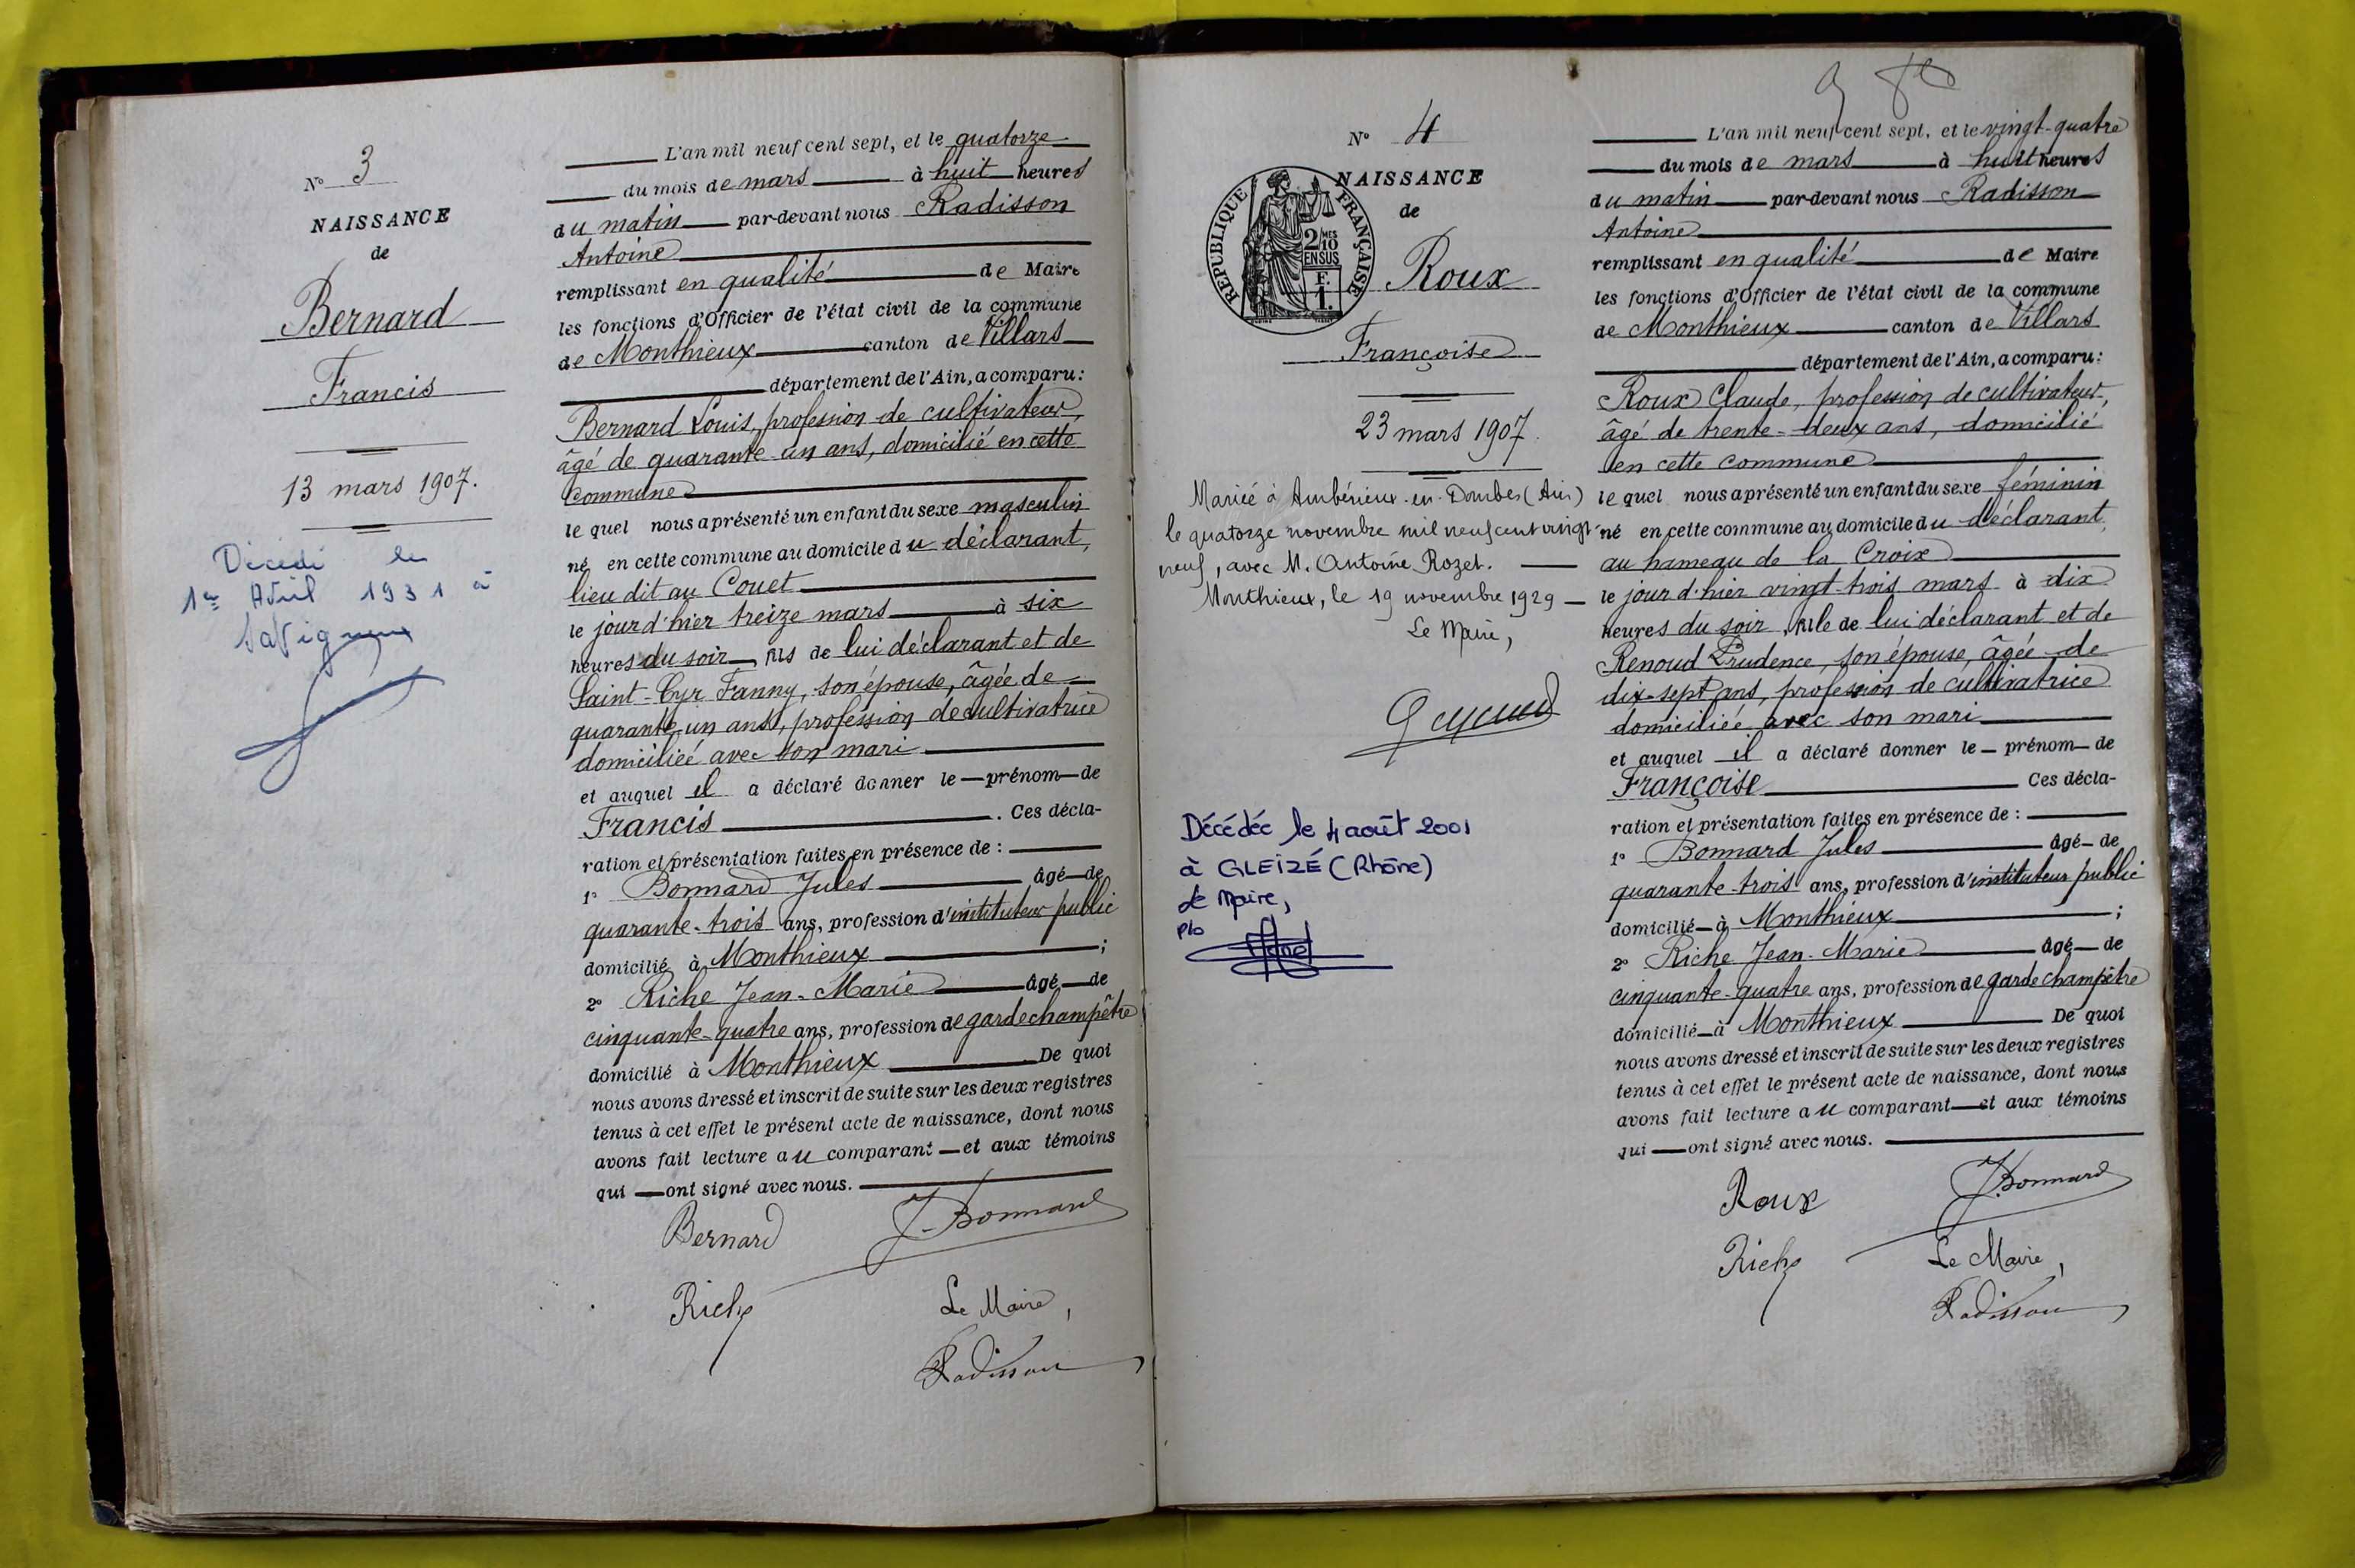 N° 3
NAISSANCE
de
Bernard
Francis
13 mars 1907.
Décédé le
1er Avril 1931 à
Savigneux
L'an mil neuf cent sept, et le quatorze
du mois de mars à huit heures
du matin par-devant nous Radisson
Antoine
remplissant en qualité de Maire
les fonctions d'Officier de l'état civil de la commune
de Monthieux canton de Villars
département de l'Ain, a comparu:
Bernard Louis, profession de cultivateur,
âgé de quarante-un ans, domicilié en cette
commune
le quel nous a présenté un enfant du sexe masculin
né en cette commune au domicile du déclarant,
lieu dit au Couet
le jour d'hier treize mars à six
heures du soir, fils de lui déclarant et de
Saint-Cyr Fanny, son épouse, âgée de
quarante-un ans, profession de cultivatrice
domiciliée avec son mari
et auquel il a déclaré donner le prénom de
Francis. Ces décla-
ration et présentation faites en présence de :
1° Bonnard Jules âgé de
quarante-trois ans, profession d'instituteur public
domicilié à Monthieux ;
2° Riche Jean-Marie âgé de
cinquante-quatre ans, profession de garde champêtre
domicilié à Monthieux De quoi
nous avons dressé et inscrit de suite sur les deux registres
tenus à cet effet le présent acte de naissance, dont nous
avons fait lecture au comparant et aux témoins
qui ont signé avec nous.
Bernard J. Bonnard
Riche Le Maire,
Radisson
N° 4
NAISSANCE
de
REPUBLIQUE FRANÇAISE
2/10 MES
EN SUS
F.
1.
Roux
Françoise
23 mars 1907.
Mariée à Ambérieux-en-Dombes (Ain)
le quatorze novembre mil neuf cent vingt-
neuf, avec M. Antoine Rozet.
Monthieux, le 19 novembre 1929
Le Maire,
Décédée le 4 août 2001
à GLEIZÉ (Rhône)
Le Maire,
P/o
L'an mil neuf cent sept, et le vingt-quatre
du mois de mars à huit heures
du matin par-devant nous Radisson
Antoine
remplissant en qualité de Maire
les fonctions d'Officier de l'état civil de la commune
de Monthieux canton de Villars
département de l'Ain, a comparu:
Roux Claude, profession de cultivateur,
âgé de trente-deux ans, domicilié
en cette commune
le quel nous a présenté un enfant du sexe féminin
né en cette commune au domicile du déclarant,
au hameau de la Croix
le jour d'hier vingt-trois mars à dix
heures du soir, fille de lui déclarant et de
Renoud Prudence, son épouse, âgée de
dix-sept ans, profession de cultivatrice
domiciliée avec son mari
et auquel il a déclaré donner le prénom de
Françoise Ces décla-
ration et présentation faites en présence de :
1° Bonnard Jules âgé de
quarante-trois ans, profession d'instituteur public
domicilié à Monthieux ;
2° Riche Jean-Marie âgé de
cinquante-quatre ans, profession de garde champêtre
domicilié à Monthieux De quoi
nous avons dressé et inscrit de suite sur les deux registres
tenus à cet effet le présent acte de naissance, dont nous
avons fait lecture au comparant et aux témoins
qui ont signé avec nous.
Roux J. Bonnard
Riche Le Maire,
Radisson